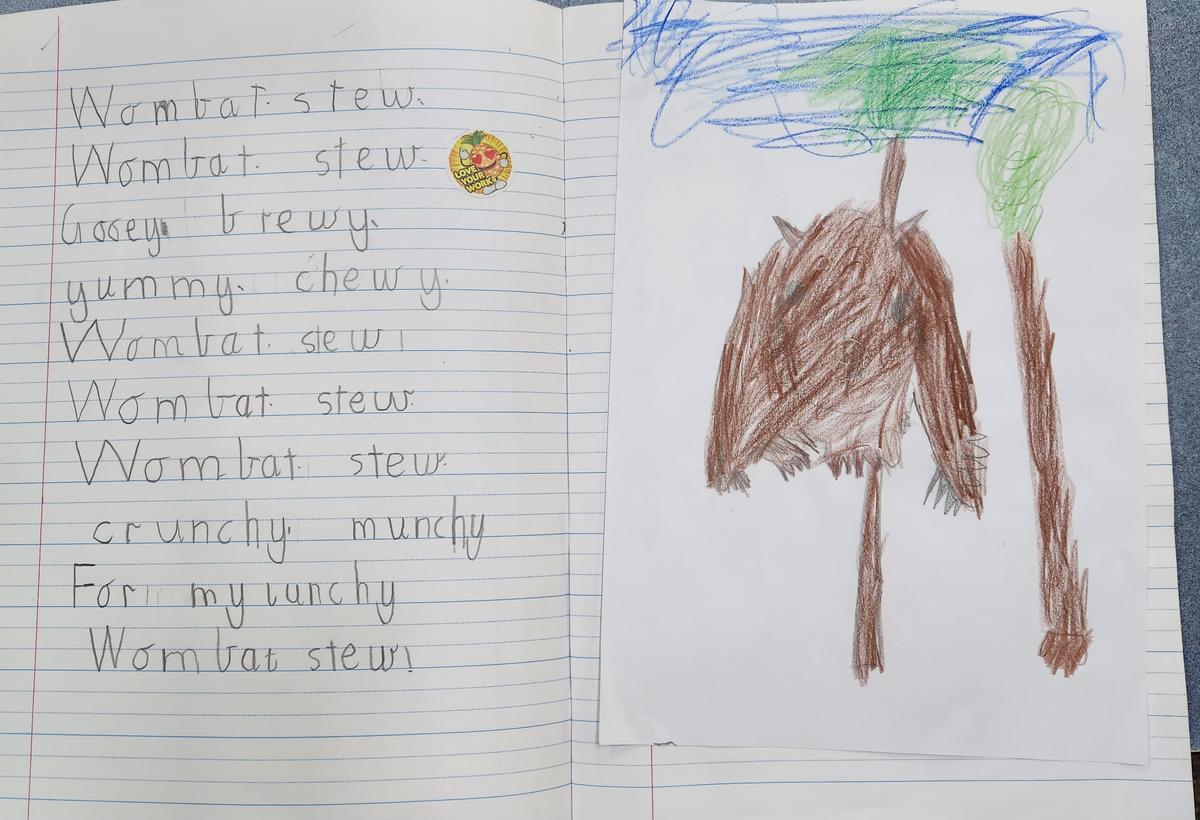 Wombat. stew.
Wombat. stew.
LOVE
YOUR
WORK
Gooey brewy.
yummy. chewy.
Wombat. stew!
Wombat. stew.
Wombat. stew.
crunchy. munchy
For my lunchy
Wombat stew!